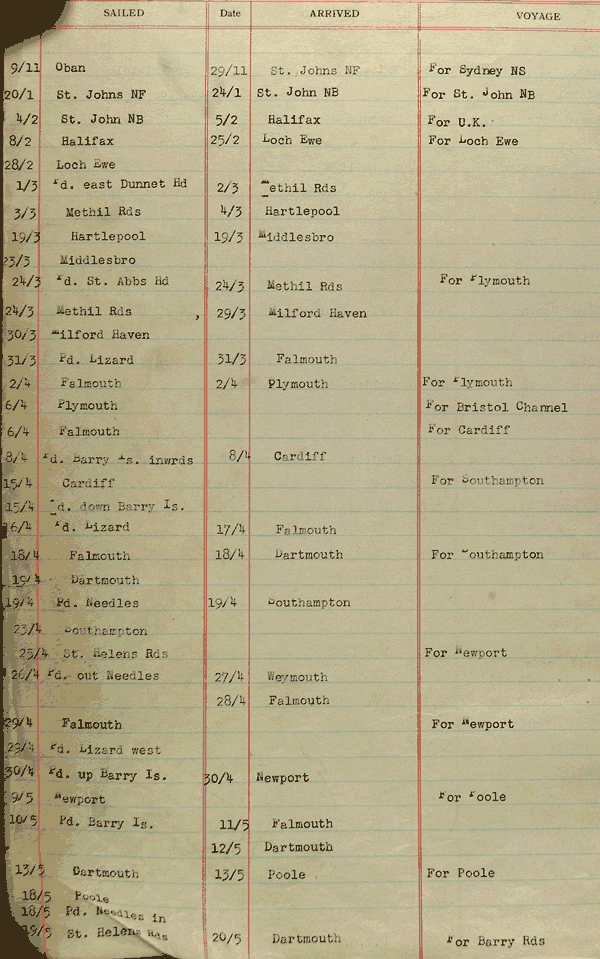 SAILED Date ARRIVED VOYAGE
9/11 Oban 29/11 St. Johns NF For Sydney NS
20/1 St. Johns NF 24/1 St. John NB For St. John NB
4/2 St. John NB 5/2 Halifax For U.K.
8/2 Halifax 25/2 Loch Ewe For Loch Ewe
28/2 Loch Ewe
1/3 Pd. east Dunnet Hd 2/3 Methil Rds
3/3 Methil Rds 4/3 Hartlepool
19/3 Hartlepool 19/3 Middlesbro
23/3 Middlesbro
24/3 Pd. St. Abbs Hd 24/3 Methil Rds For Plymouth
24/3 Methil Rds , 29/3 Milford Haven
30/3 Milford Haven
31/3 Pd. Lizard 31/3 Falmouth
2/4 Falmouth 2/4 Plymouth For Plymouth
6/4 Plymouth For Bristol Channel
6/4 Falmouth For Cardiff
8/4 Pd. Barry Is. inwrds 8/4 Cardiff
15/4 Cardiff For Southampton
15/4 Pd. down Barry Is.
16/4 Pd. Lizard 17/4 Falmouth
18/4 Falmouth 18/4 Dartmouth For Southampton
19/4 Dartmouth
19/4 Pd. Needles 19/4 Southampton
23/4 Southampton
25/4 St. Helens Rds For Newport
26/4 Pd. out Needles 27/4 Weymouth
28/4 Falmouth
29/4 Falmouth For Newport
29/4 Pd. Lizard west
30/4 Pd. up Barry Is. 30/4 Newport
9/5 Newport For Poole
10/5 Pd. Barry Is. 11/5 Falmouth
12/5 Dartmouth
13/5 Dartmouth 13/5 Poole For Poole
18/5 Poole
18/5 Pd. Needles in
19/5 St. Helens Rds 20/5 Dartmouth For Barry Rds